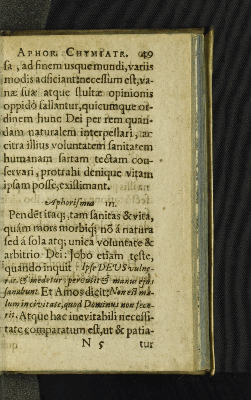 APHOR. CHYMIATR. 49
sa, ad finem usque mundi, variis
modis adficiant: necessum est, va-
næ suæ atque stultæ opinionis
oppidò fallantur, quicumque or-
dinem hunc Dei per rem quan-
dam naturalem interpellari, ac
citra illius voluntatem sanitatem
humanam sartam tectam con-
servari, protrahi denique vitam
ipsam posse, existimant.
Aphorismus III.
Pendēt itaq; tam sanitas & vita,
quàm mors morbiq; nō à natura
sed à sola atq; unica voluntate &
arbitrio Dei: Jobo etiam teste,
quando inquit: Ipse DEUS vulne-
rat & medetur: percussit & manus ejus
sanabunt. Et Amos dicit: Non est ma-
lum in civitate, quod Dominus non fece-
rit. Atque hac inevitabili necessi-
tate comparatum est, ut & patia-
N 5 tur